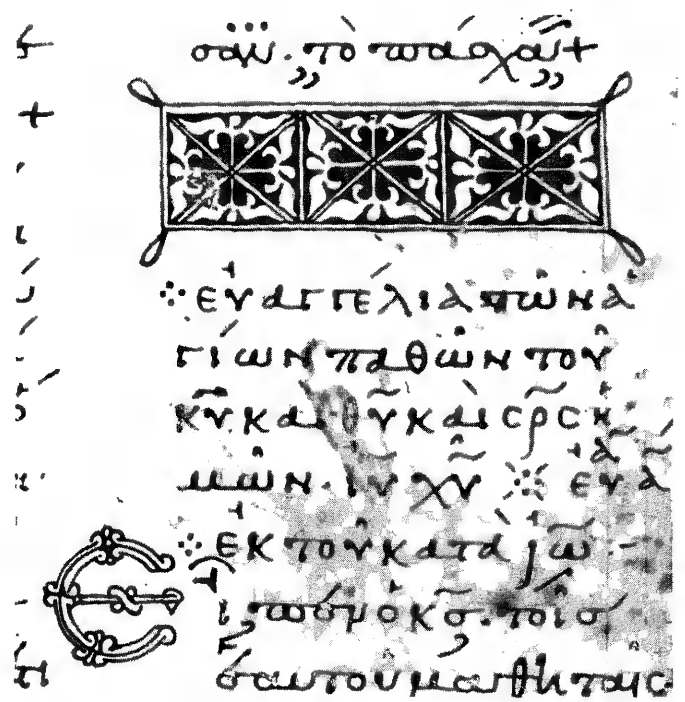 τὸ πάσχα +
εὐαγγέλια τῶν ἁ
γίων παθῶν τοῦ
κ̅υ̅ καὶ θ̅υ̅ καὶ σ̅ρ̅ς ἡ
μῶν ι̅υ̅ χ̅υ̅ εὐα α̅
ἐκ τοῦ κατὰ ἰω
Εἶπεν ὁ κ̅ς̅ τοῖς
ἑαυτοῦ μαθηταῖς